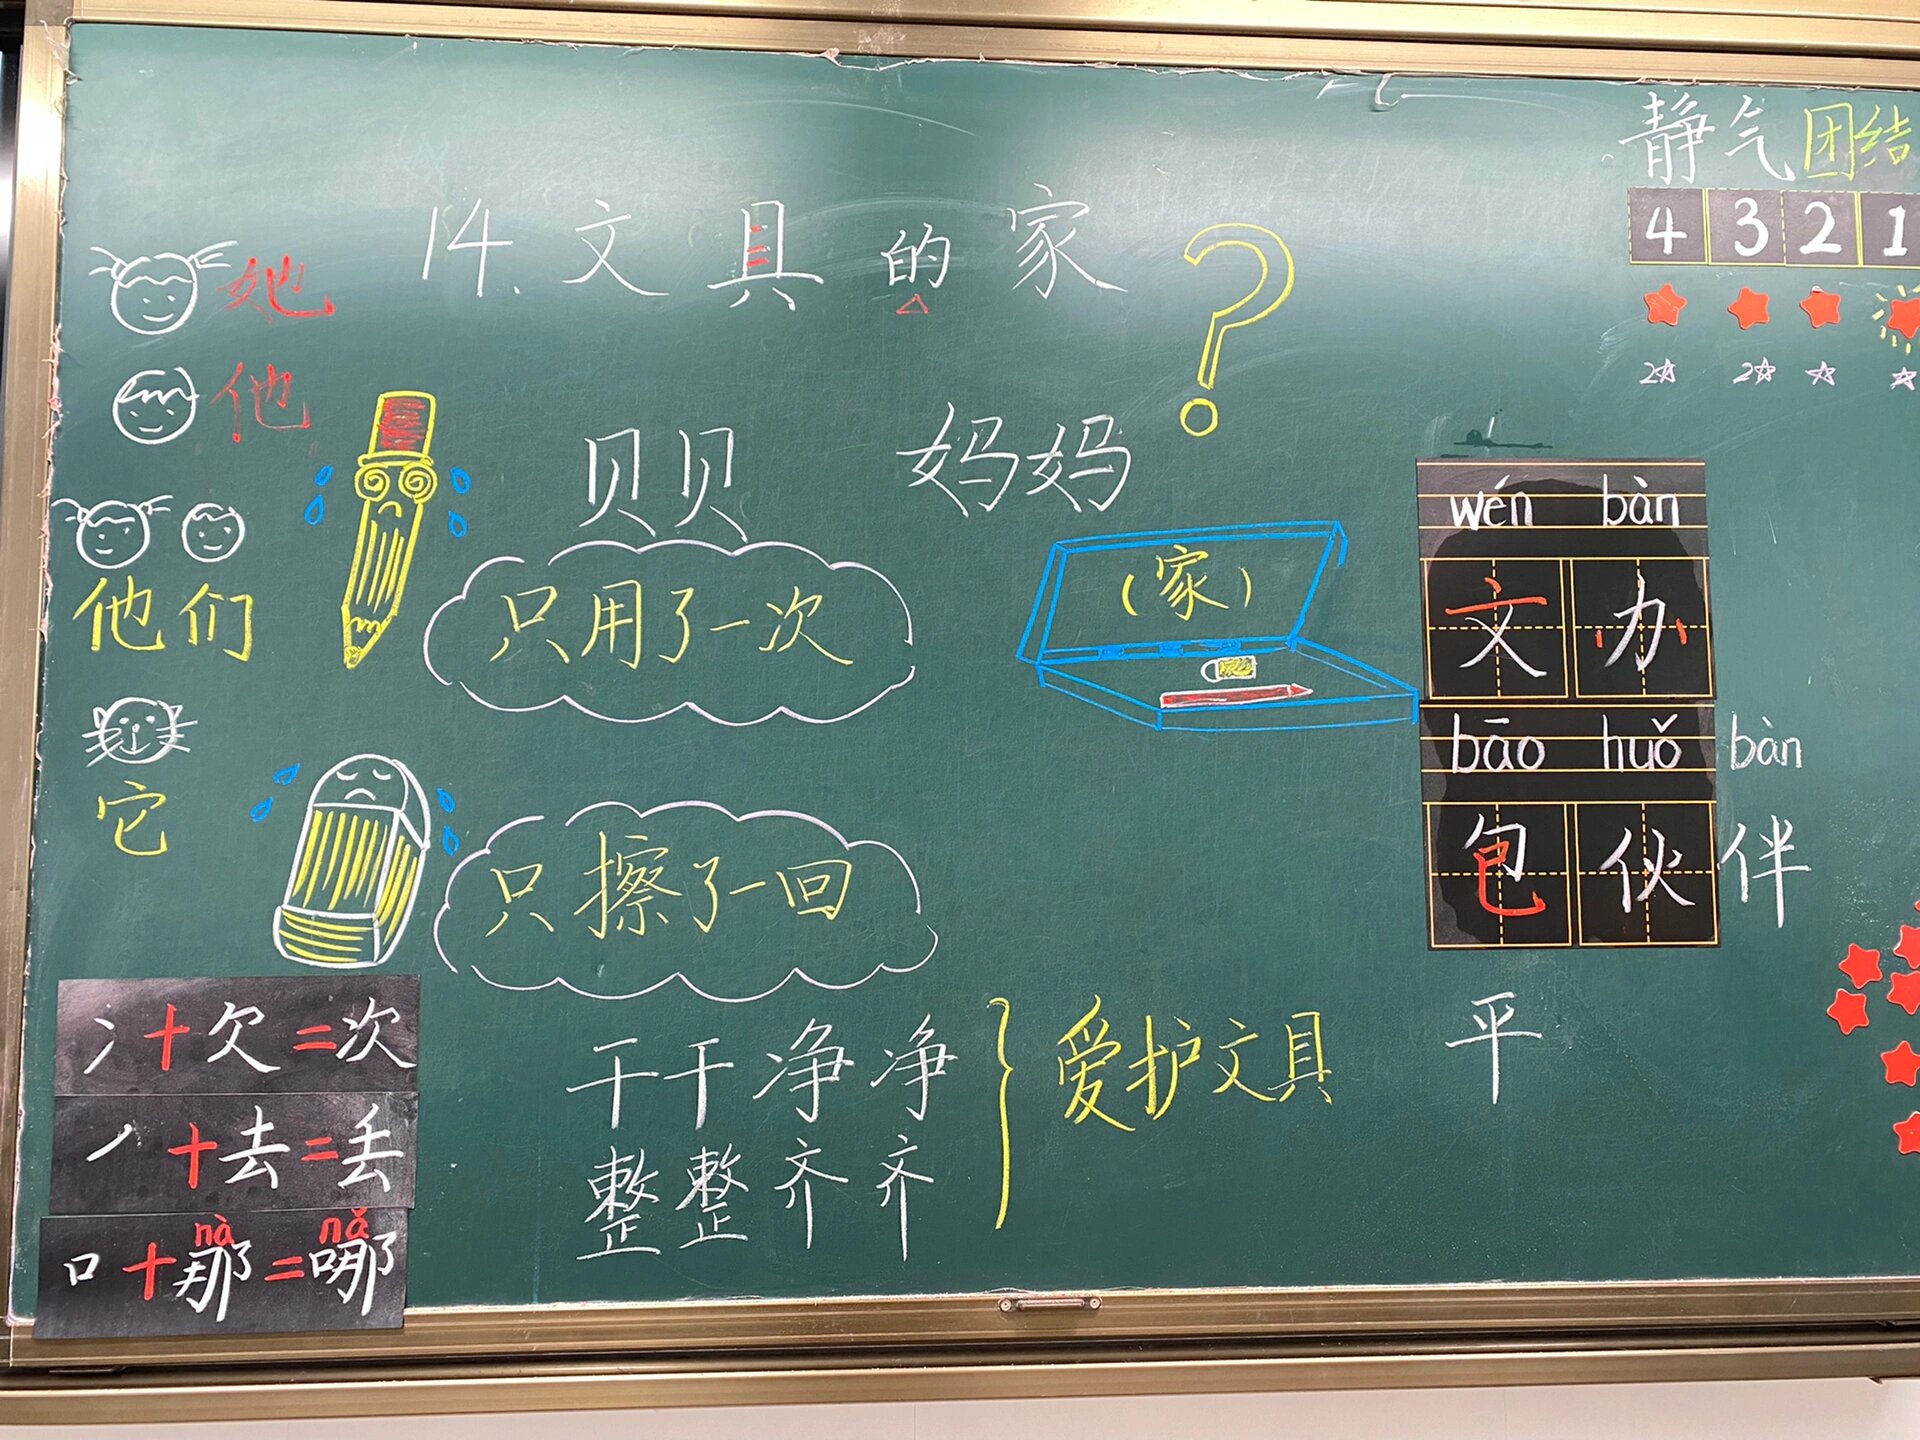 静气团结
4 3 2 1
14.文具的家
她
他
他们
它
2☆ 2☆ ☆ ☆
贝贝 妈妈
只用了一次
(家)
wén bàn
文 办
bāo huǒ bàn
包 伙 伴
只擦了一回
冫+欠=次
丿+去=丢
nà nǎ
口+那=哪
干干净净
整整齐齐
爱护文具
平